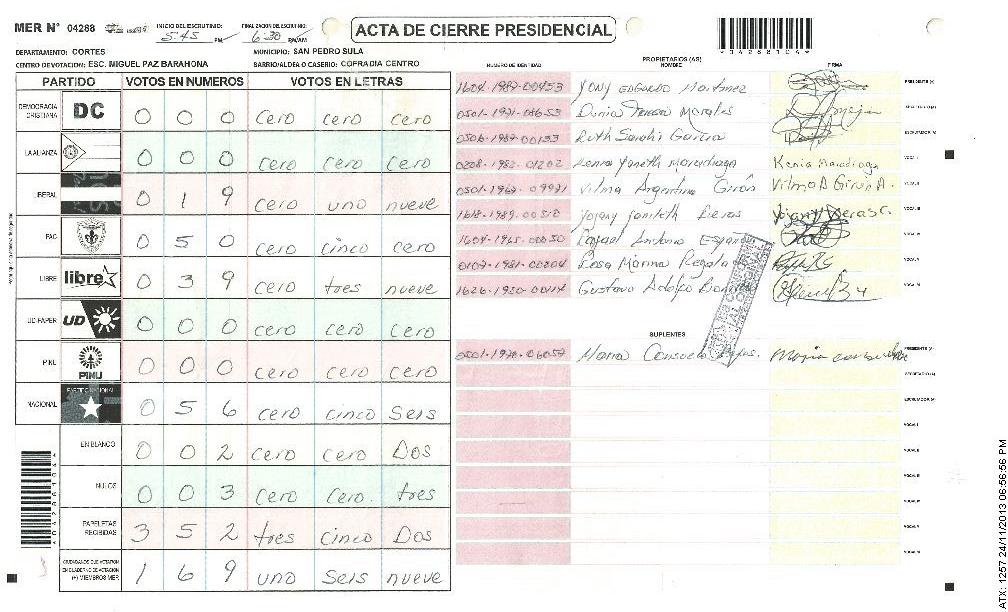 MER N° 04288 INICIO DEL ESCRUTINIO: 5:45 PM FINALIZACION DEL ESCRUTINIO: 6:30 PM/AM
ACTA DE CIERRE PRESIDENCIAL
04288104
DEPARTAMENTO: CORTES MUNICIPIO: SAN PEDRO SULA
CENTRO DE VOTACION: ESC. MIGUEL PAZ BARAHONA BARRIO/ALDEA O CASERIO: COFRADIA CENTRO
PARTIDO VOTOS EN NUMEROS VOTOS EN LETRAS
DEMOCRACIA CRISTIANA DC 0 0 0 cero cero cero
LA ALIANZA 0 0 0 cero cero cero
LIBERAL 0 1 9 cero uno nueve
PAC 0 5 0 cero cinco cero
LIBRE libre 0 3 9 cero tres nueve
UD-FAPER UD 0 0 0 cero cero cero
PINU PINU 0 0 0 cero cero cero
NACIONAL PARTIDO NACIONAL 0 5 6 cero cinco Seis
EN BLANCO 0 0 2 cero cero Dos
NULOS 0 0 3 cero cero. tres
PAPELETAS RECIBIDAS 3 5 2 tres cinco Dos
CIUDADANOS QUE VOTARON EN CUADERNO DE VOTACION (+) MIEMBROS MER 1 6 9 uno Seis nueve
PROPIETARIOS (AS)
NUMERO DE IDENTIDAD NOMBRE FIRMA
1604-1987-00453 Yony Edgardo Martinez PRESIDENTE (A)
0501-1971-08653 Dunia Morales SECRETARIO (A)
0506-1987-00133 Ruth Sarahi Garcia ESCRUTADOR (A)
0208-1982-01202 Kenia Yaneth Maradiaga Kenia Maradiaga VOCAL I
0501-1967-09971 Vilma Argentina Girón Vilma A Girón A. VOCAL II
1618-1989-00512 Yojany Janileth VOCAL III
1604-1965-00050 Rafael Antonio VOCAL IV
0107-1981-00804 Rosa Marina VOCAL V
1626-1950-00114 Gustavo Adolfo VOCAL VI
SUPLENTES
0501-1978-06057 Maria Consuelo Maria PRESIDENTE (A)
SECRETARIO (A)
ESCRUTADOR (A)
VOCAL I
VOCAL II
VOCAL III
VOCAL IV
VOCAL V
VOCAL VI
ATX: 1257 24/11/2013 06:56:56 PM